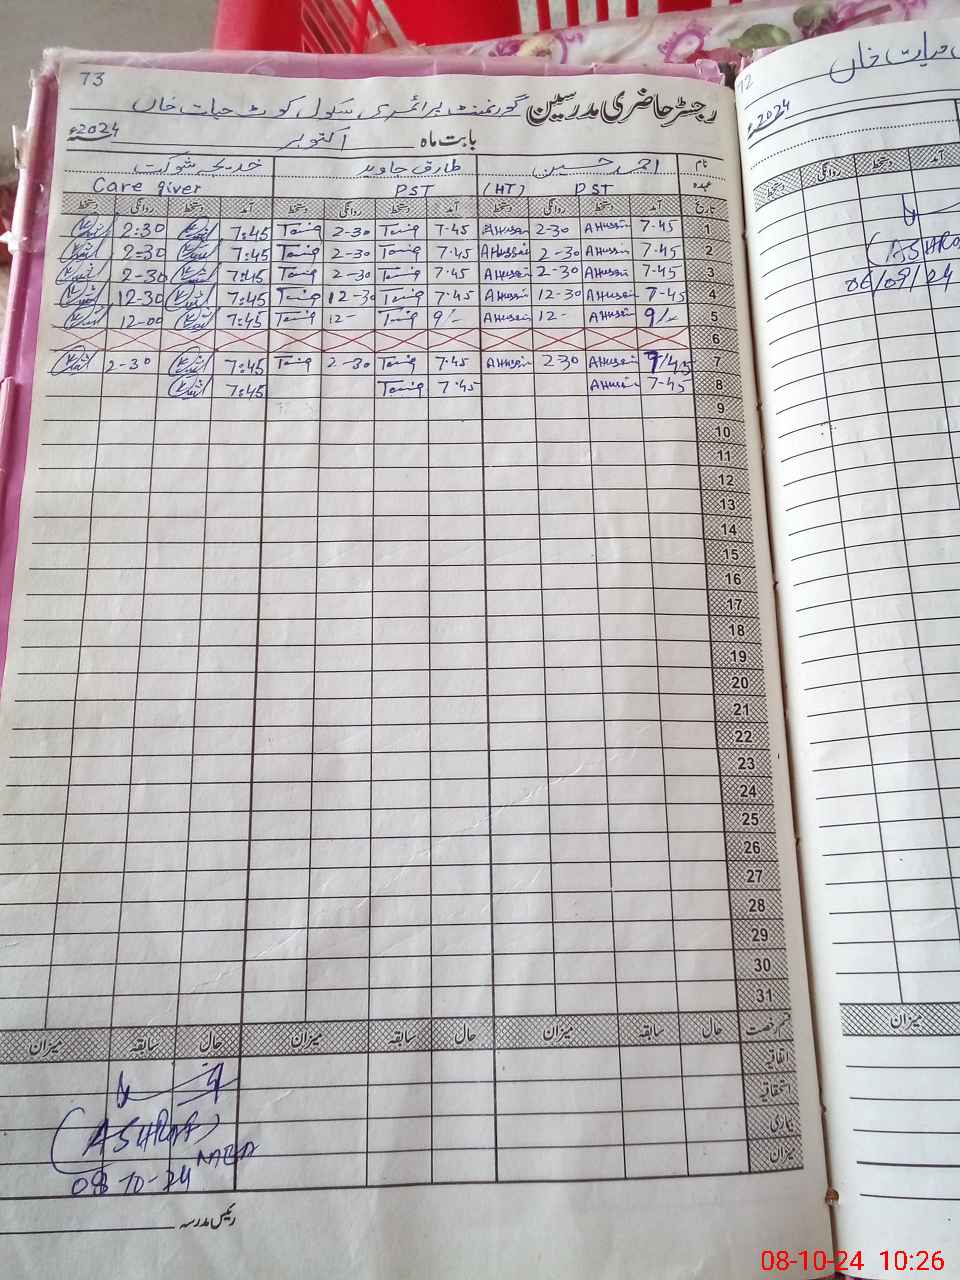 73
رجسٹر حاضری مدرسین گورنمنٹ پرائمری سکول کوٹ حیات خاں
بابت ماہ اکتوبر 2024ء
نام احمد حسین طارق جاوید خدیجہ شوکت
عہدہ PST (HT) PST Care giver
تاریخ آمد دستخط روانگی دستخط آمد دستخط روانگی دستخط آمد دستخط روانگی دستخط
1 7-45 AHussain 2-30 AHussain 7-45 2-30 7:45 2:30
2 7-45 AHussain 2-30 AHussain 7-45 2-30 7:45 2:30
3 7-45 AHussain 2-30 AHussain 7-45 2-30 7:45 2-30
4 7-45 AHussain 12-30 AHussain 7-45 12-30 7:45 12-30
5 9/- AHussain 12- AHussain 9/- 12- 7:45 12-00
6
7 7/45 AHussain 2-30 AHussain 7-45 2-30 7:45 2-30
8 7-45 AHussain 7-45 7:45
9
10
11
12
13
14
15
16
17
18
19
20
21
22
23
24
25
26
27
28
29
30
31
قسم رخصت حال سابقہ میزان حال سابقہ میزان حال سابقہ میزان
اتفاقیہ
استحقاقیہ
بیماری
میزان
(ASHRAF)
08-10-24
رئیس مدرسہ
72
حیات خاں
2024ء
آمد دستخط روانگی دستخط
06/09/24
میزان
08-10-24 10:26